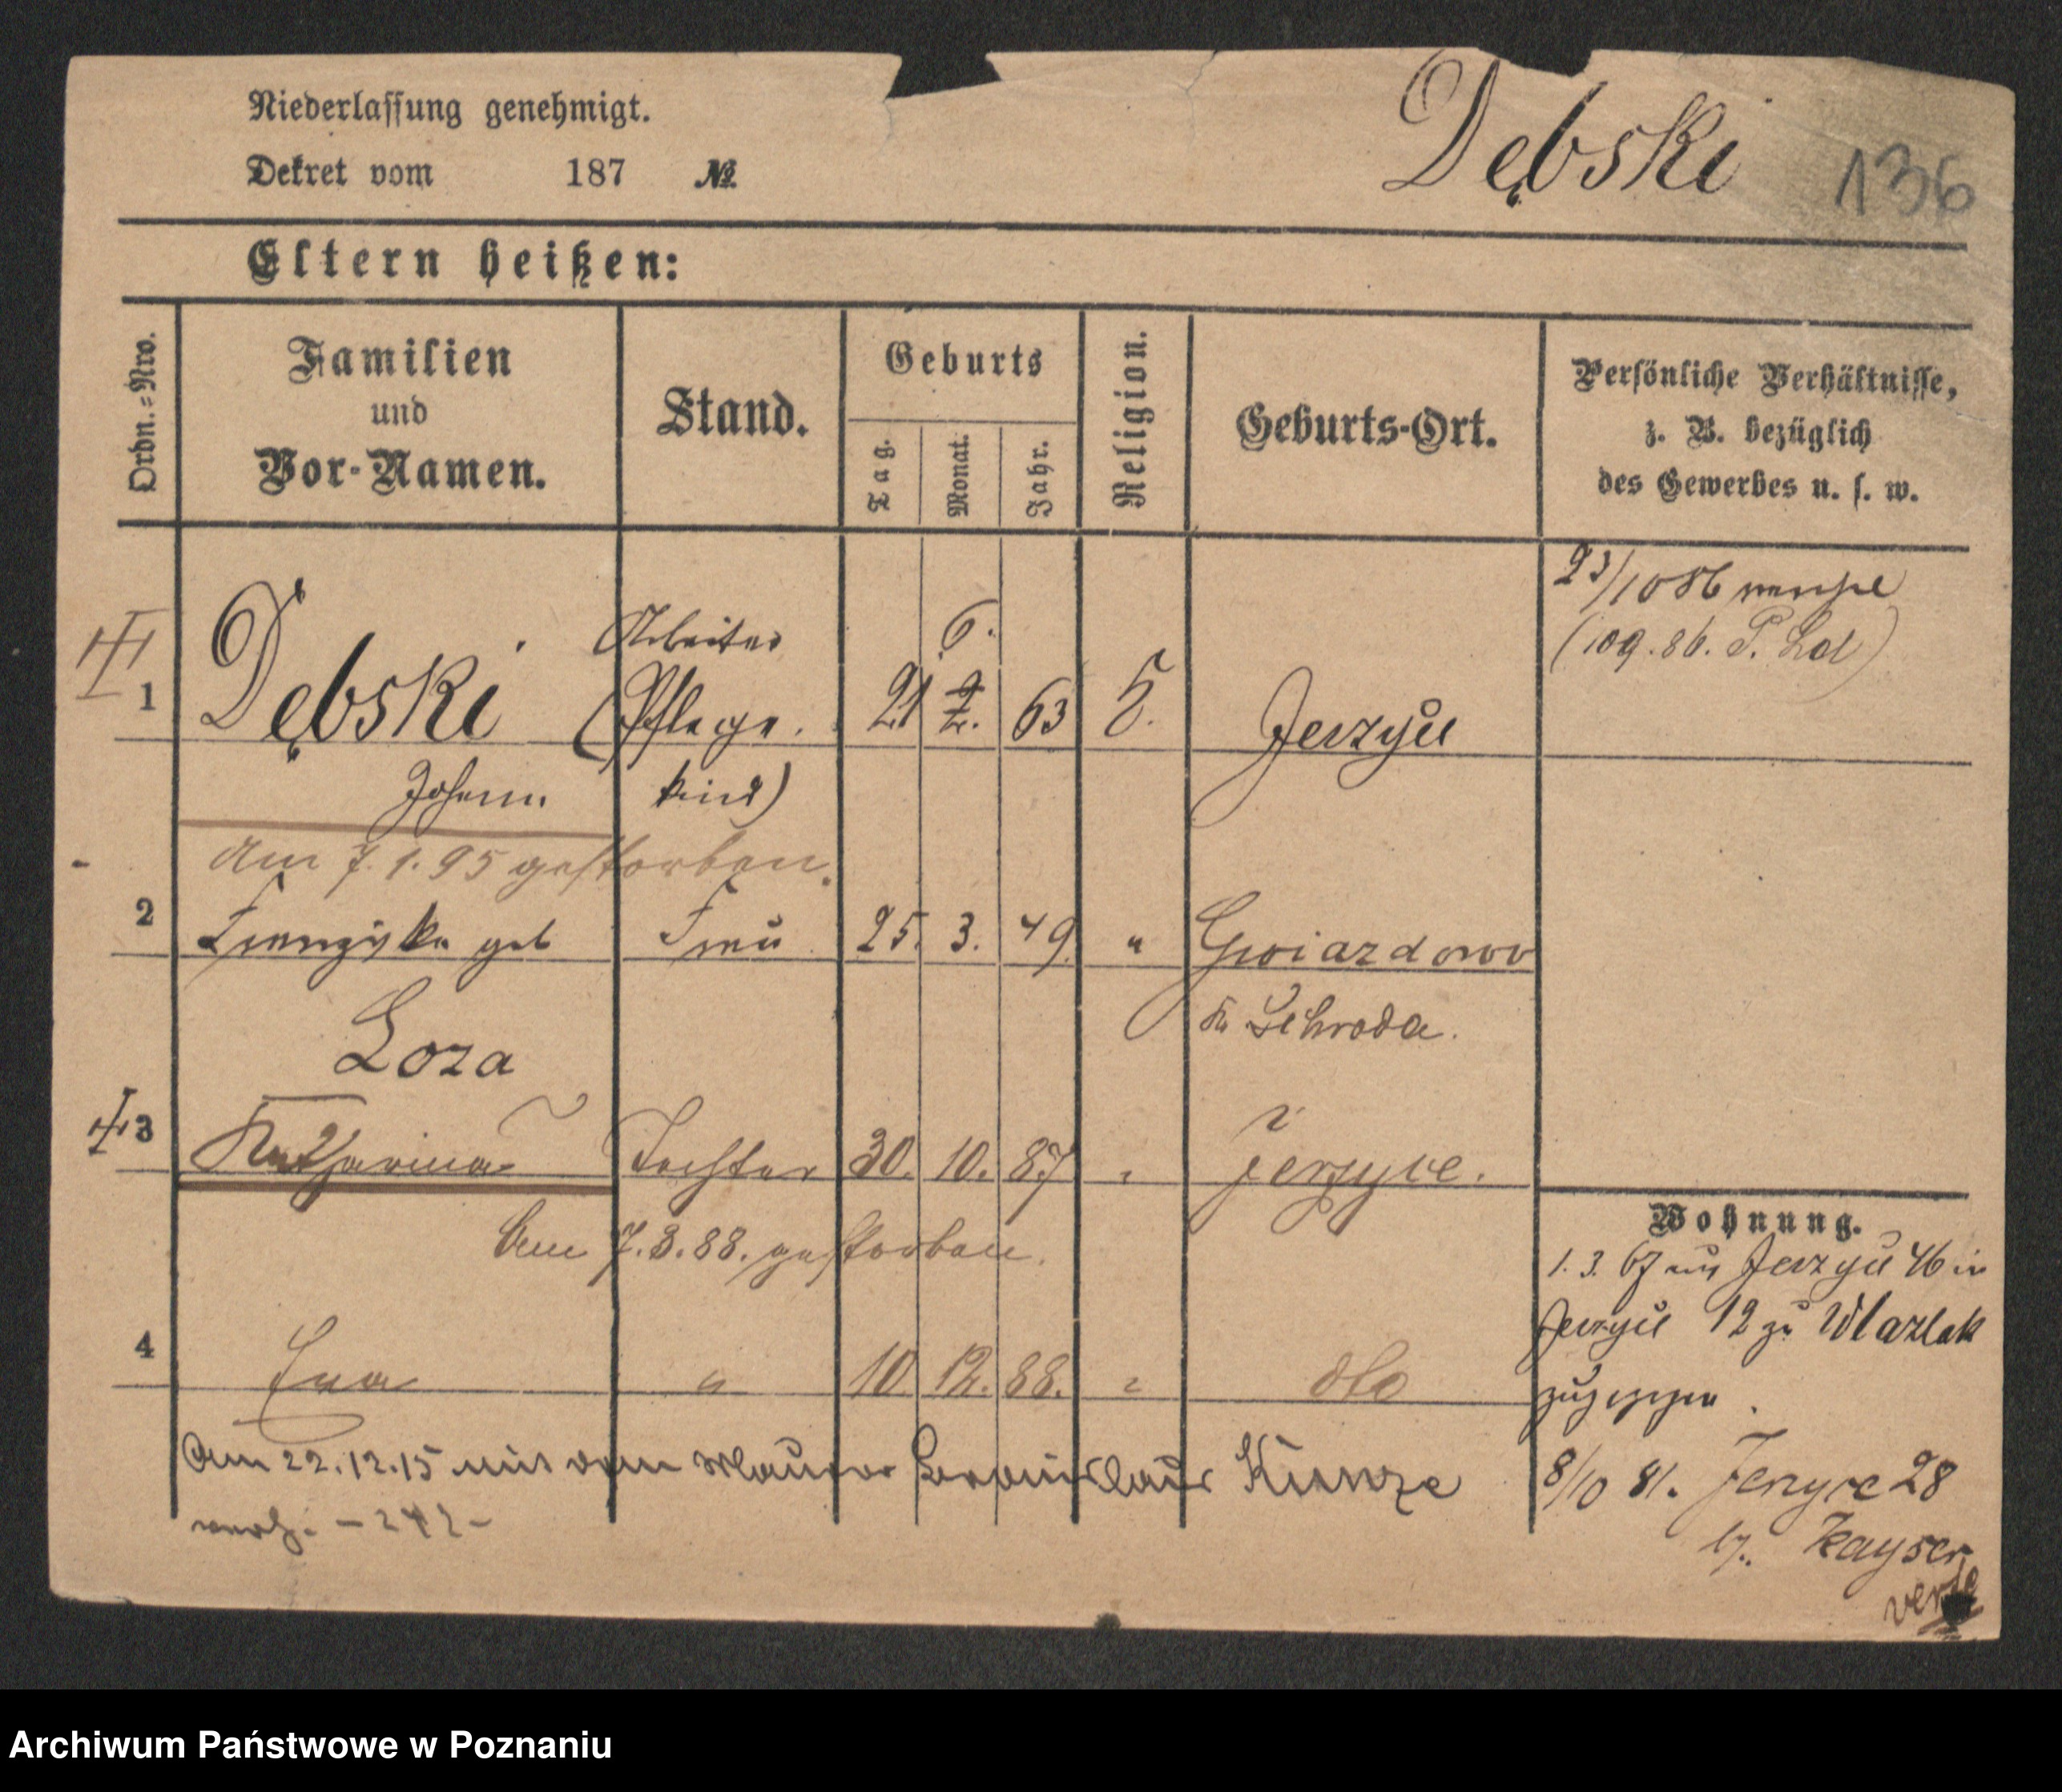 Niederlassung genehmigt.
Dekret vom 187 №
Dębski 136
Eltern heißen:
Ordn.-Nro.
Familien
und
Vor-Namen.
Stand.
Geburts
Tag.
Monat.
Jahr.
Religion.
Geburts-Ort.
Persönliche Verhältnisse,
z. B. bezüglich
des Gewerbes u. s. w.
23/10 86
(109. 86. P. Ld)
Arbeiter 6.
1 Dębski (Pflege. 21 2. 63 Jerzyce
Johann kind)
Am 7.1.95 gestorben.
2 Franziska geb Frau 25. 3. 49. " Gwiazdowo
Kr Schroda.
Loza
3 Katharina Tochter 30. 10. 87 " Jerzyce.
Am 7.3.88. gestorben.
Wohnung.
1. 3. 67 aus Jerzyce 46 in
Jerzyce 12 zu Wlazlak
zugezogen.
4 Eva " 10 12. 88. " dto
Am 22.12.15 mit dem Maurer Kunze
verh. - 242 -
8/10 81. Jerzyce 28
b/. Kayser
verte
Archiwum Państwowe w Poznaniu